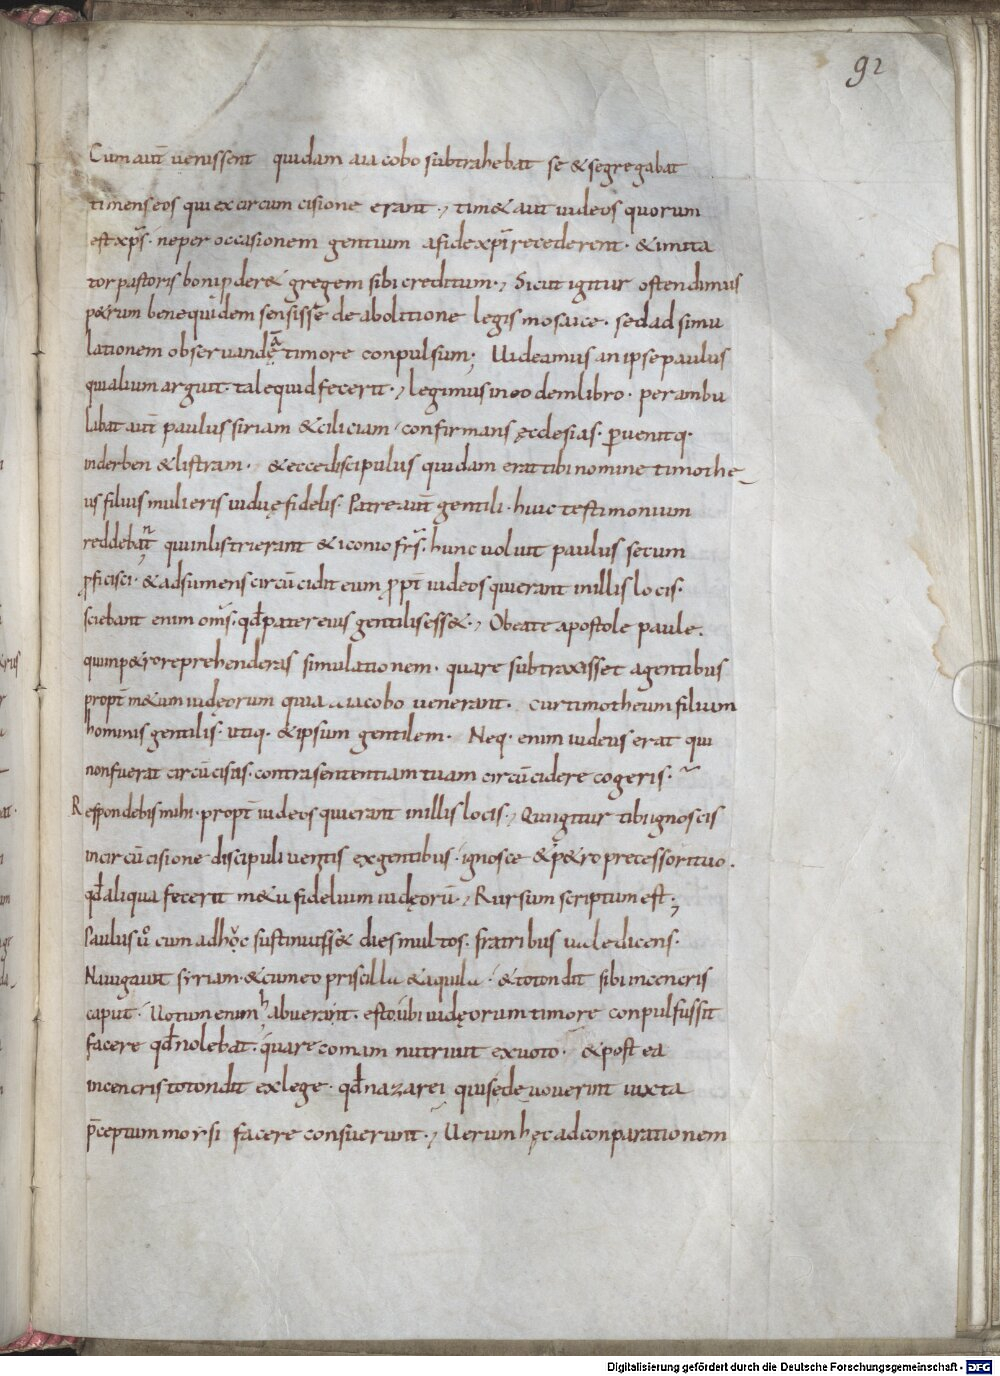 92
Cum aut̄ uenissent quidam a iacobo subtrahebat se & segregabat
timens eos qui ex circumcisione erant·, tim& aut iudeos quorum
est xp̄s· ne per occasionem gentium a fide xp̄i recederent· & imita
tor pastoris boni p̱der& gregem sibi creditum·, Sicut igitur ostendimus
p&rum bene quidem sensisse de abolitione legis mosaice· sed ad simu
lationem obseruandę a timore conpulsum; Uideamus an ipse paulus
qui alium arguit· tale quid fecerit·, legimus in eodem libro· perambu
labat aut̄ paulus siriam & ciliciam· confirmans ęcclesias· ꝑuenitq·
in derben & listram· & ecce discipulus quidam erat ibi nomine timothe
us filius mulieris uiduę fidelis· Patre aut̄ gentili· huic testimonium
reddebant qui in listri erant & iconio fr̄s· hunc uoluit paulus secum
ꝓficisci· & adsumens circūcidit eum ꝓpt̄ iudeos qui erant in illis locis·
sciebant enim om̄s· qđ pater eius gentilis ess&·, O beate apostole paule·
qui in p&ro reprehenderas simulationem· quare subtraxisset a gentibus
propt̄ m&um iudęorum qui a iacobo uenerant· cur timotheum filium
hominis gentilis· utiq· & ipsum gentilem· Neq· enim iudeus erat qui
non fuerat circūcisus· contra sententiam tuam circūcidere cogeris·
Respondebis mihi· propt̄ iudeos qui erant in illis locis·, Qui igitur tibi ignoscis
in circūcisione discipuli uenitis ex gentibus· ignosce & p&ro precessori tuo·
qđ aliqua fecerit m&u fidelium iudęorū·, Rursum scriptum est·,
Paulus u͛o cum adhǒc sustinuiss& dies multos· fratribus ualedicens·
Nauigauit syriam· & cum eo priscilla & aquila· & totondit sibi in cencris
caput· Uotum enim habuerant· esto ubi iudęorum timore conpulsus sit
facere qđ nolebat· quare comam nutriuit ex uoto· & postea
in cencris totondit ex lege· qđ nazarei qui se dę uouerint iuxta
p̄ceptum morsi facere consuerunt·, Uerum hęc ad conparationem
Digitalisierung gefördert durch die Deutsche Forschungsgemeinschaft - DFG